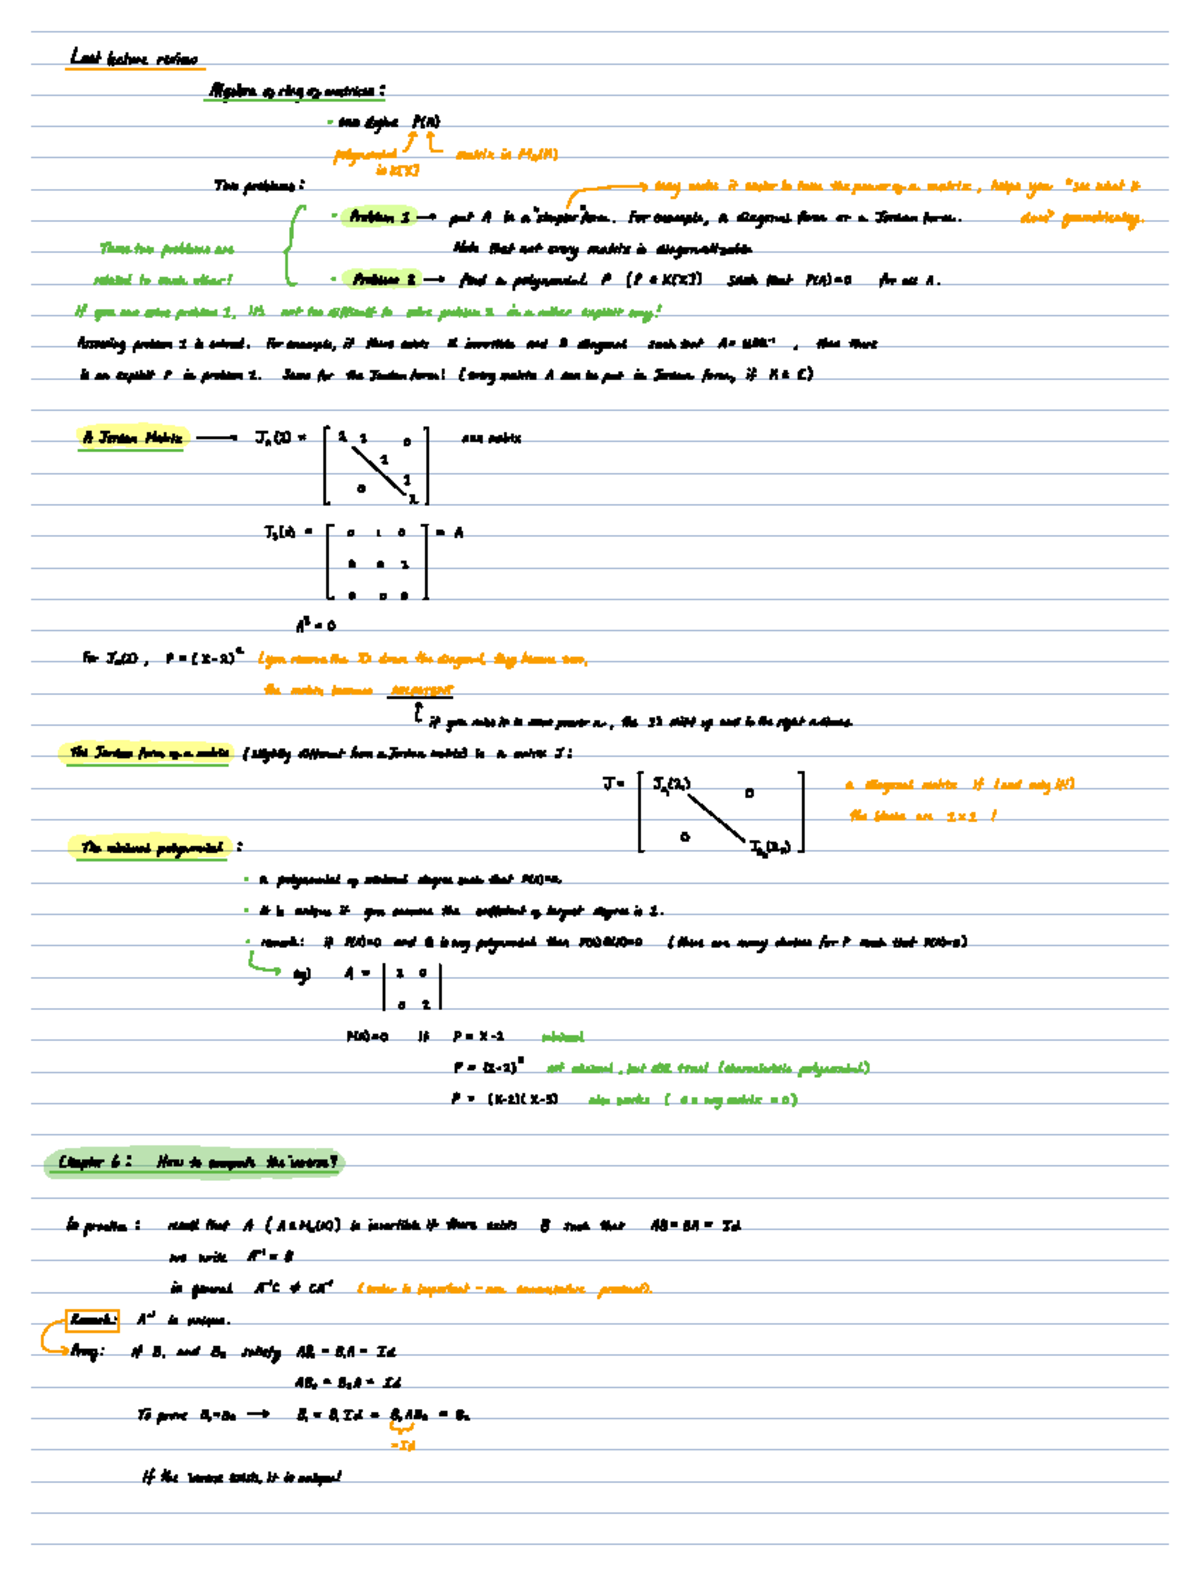 Last lecture review
Algebra of ring of matrices :
can define P(A)
polynomial in K[X]
matrix in Mn(K)
Two problems :
may make it easier to take the power of a matrix, helps you "see what it does" geometrically.
Problem 1 → put A in a "simpler" form. For example, a diagonal form or a Jordan form.
Note that not every matrix is diagonalizable
These two problems are
related to each other!
Problem 2 → find a polynomial P (P ∈ K[X]) such that P(A)=0 for all A.
If you can solve problem 1, it's not too difficult to solve problem 2 in a rather explicit way!
Assuming problem 1 is solved. For example, if there exists invertible and D diagonal such that , then there
is an explicit P in problem 2. Same for the Jordan form! (every matrix A can be put in Jordan form, if K = C)
A Jordan Matrix → Jn(λ) = [ λ 1 0 1 0 1 λ ] nxn matrix
J3(0) = [ 0 1 0 ] = A
0 0 1
0 0 0
A³ = 0
For Jn(λ), P = (X-λ)ⁿ (you remove the λ's down the diagonal, they become zero,
the matrix becomes NILPOTENT
if you raise it to some power n, the 1's shift up and to the right
The Jordan form of a matrix (slightly different from a Jordan matrix) is a matrix J :
J = [ J (λ1) 0 0 J (λn) ]
a diagonal matrix if (and only if!)
the blocks are 1x1 !
The minimal polynomial :
a polynomial of minimal degree such that P(A)=0.
it is unique if you assume the coefficient of largest degree is 1.
remark: if P(A)=0 and Q is any polynomial then P(A)Q(A)=0 (there are many choices for P such that P(A)=0)
eg) A = | 2 0 |
0 2
P(A)=0 if P = X-2 minimal
P = (X-2)² not minimal, but still (characteristic polynomial)
P = (X-2)(X-3) also works ( 0 x any matrix = 0)
Chapter 6 : How to compute the inverse?
In practice : recall that A (A ∈ Mn(K)) is invertible if there exists B such that AB = BA = Id
we write A⁻¹ = B
in general A⁻¹C ≠ CA⁻¹ (order is important - non commutative product).
Remark: A⁻¹ is unique.
Proof: if B1 and B2 satisfy AB1 = B1A = Id
AB2 = B2A = Id
To prove B1=B2 → B1 = B1 Id = B1AB2 = B2
= Id
If the inverse exists, it is unique!